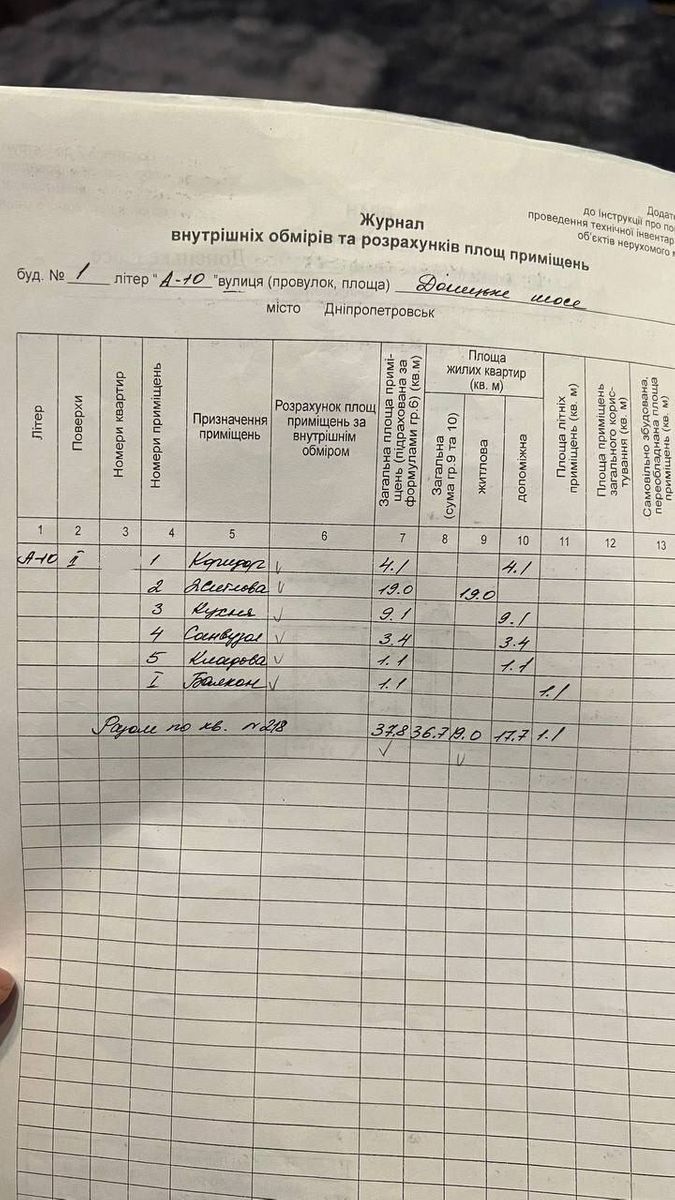 Додат
до Інструкції про по
проведення технічної інвентар
об'єктів нерухомого м
Журнал
внутрішніх обмірів та розрахунків площ приміщень
буд. № 1 літер "А-10" вулиця (провулок, площа) Донецьке шосе
місто Дніпропетровськ
Літер Поверхи Номери квартир Номери приміщень Призначення приміщень Розрахунок площ приміщень за внутрішнім обміром Загальна площа приміщень (підрахована за формулами гр.6) (кв.м) Площа жилих квартир (кв. м) Загальна (сума гр.9 та 10) житлова допоміжна Площа літніх приміщень (кв. м) Площа приміщень загального користування (кв. м) Самовільно збудована, переобладнана площа приміщень (кв. м)
1 2 3 4 5 6 7 8 9 10 11 12 13
А-10 ІІ 1 Коридор √ 4.1 4.1
2 Житлова √ 19.0 19.0
3 Кухня √ 9.1 9.1
4 Санвузол √ 3.4 3.4
5 Кладова √ 1.1 1.1
І Балкон √ 1.1 1.1
Разом по кв. №218 37.8 36.7 19.0 17.7 1.1
√ √